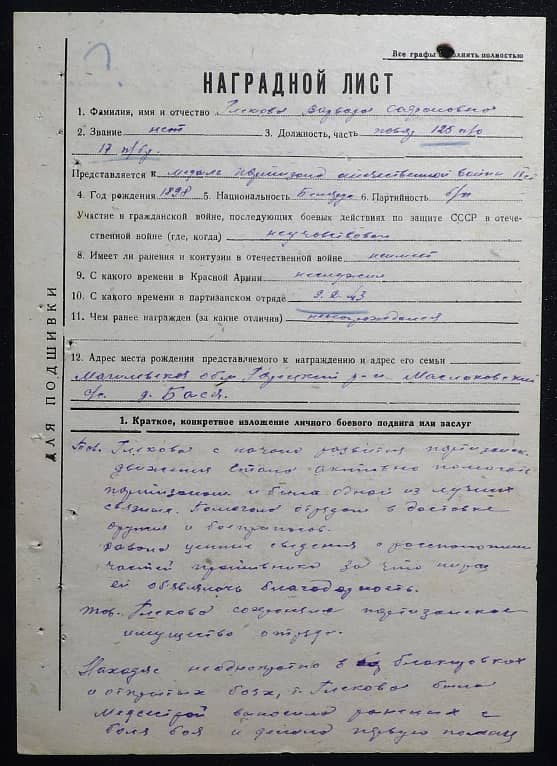 Все графы заполнять полностью
НАГРАДНОЙ ЛИСТ
1. Фамилия, имя и отчество Глекова Варвара
2. Звание нет 3. Должность, часть повар 125 п/о
17 п/бр.
Представляется к медаль партизана отечественной войны
4. Год рождения 1898 5. Национальность 6. Партийность б/п
Участие в гражданской войне, последующих боевых действиях по защите СССР в отече-
ственной войне (где, когда) неучаствовал
8. Имеет ли ранения и контузии в отечественной войне неимеет
9. С какого времени в Красной Армии неслужил
10. С какого времени в партизанском отряде 43
11. Чем ранее награжден (за какие отличия) ненаграждался
12. Адрес места рождения представляемого к награждению и адрес его семьи
Могилевская обл. Горецкий р-н. Маслаковский
с/с д. Бася.
ДЛЯ ПОДШИВКИ
1. Краткое, конкретное изложение личного боевого подвига или заслуг
Тов. Глекова с начала развития партизанск.
движения стала активно помогать
партизанам и была одной из лучших
связных. Помогала отрядам в доставке
оружия и боеприпасов.
давала ценные сведения о расположении
частей противника за что
ей объявлялась благодарность.
тов. Глекова сохраняла партизанское
имущество отряда.
Находясь неоднократно в блокировках
и открытых боях, т. Глекова была
Медсестрой выносила раненых с
поля боя и делала первую помощь